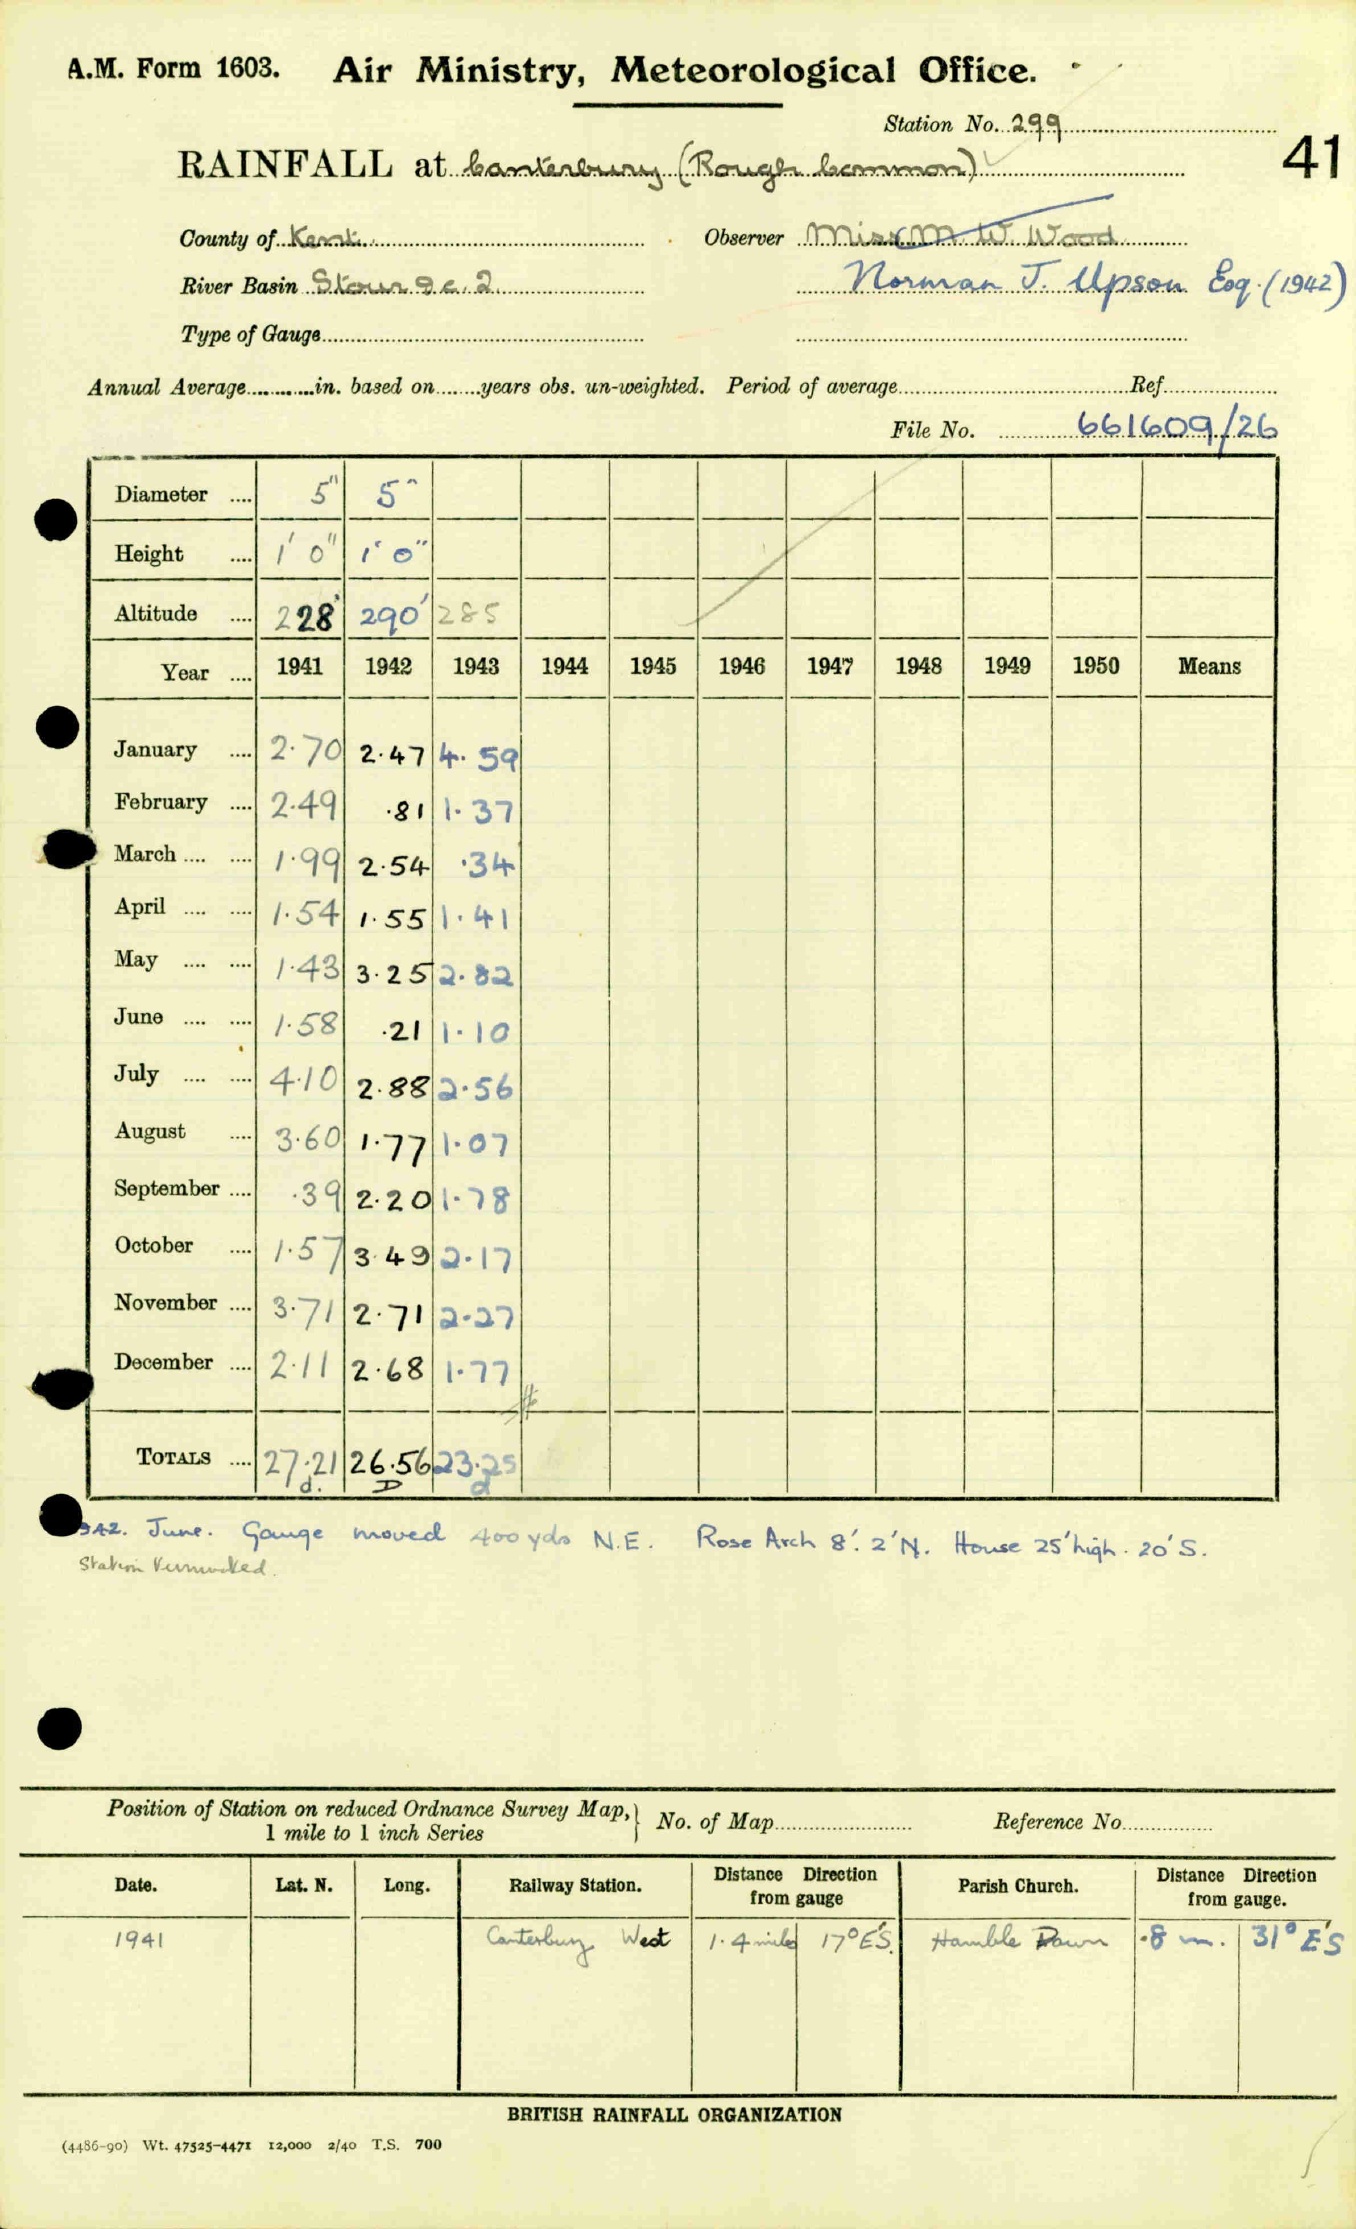 A.M. Form 1603. Air Ministry, Meteorological Office.
Station No. 299
41
RAINFALL at Canterbury (Rough Common)
County of Kent. Observer Miss M. W. Wood
River Basin Stour 9c.2 Norman J. Upson Esq. (1942)
Type of Gauge
Annual Average in. based on years obs. un-weighted. Period of average Ref.
File No. 661609/26
Diameter 5" 5"
Height 1' 0" 1' 0"
Altitude 228' 290' 285
Year 1941 1942 1943 1944 1945 1946 1947 1948 1949 1950 Means
January 2.70 2.47 4.59
February 2.49 .81 1.37
March 1.99 2.54 .34
April 1.54 1.55 1.41
May 1.43 3.25 2.82
June 1.58 .21 1.10
July 4.10 2.88 2.56
August 3.60 1.77 1.07
September .39 2.20 1.78
October 1.57 3.49 2.17
November 3.71 2.71 2.27
December 2.11 2.68 1.77
TOTALS 27.21 26.56 23.25
d. D d
942. June. Gauge moved 400 yds N.E. Rose Arch 8'. 2'N. House 25'high. 20'S.
Station
Position of Station on reduced Ordnance Survey Map, } No. of Map Reference No.
1 mile to 1 inch Series
Date. Lat. N. Long. Railway Station. Distance Direction from gauge Parish Church. Distance Direction from gauge.
1941 Canterbury West 1.4 miles 17° E'S. Hamble Down .8 m. 31° E'S
BRITISH RAINFALL ORGANIZATION
(4486-90) Wt. 47525-4471 12,000 2/40 T.S. 700